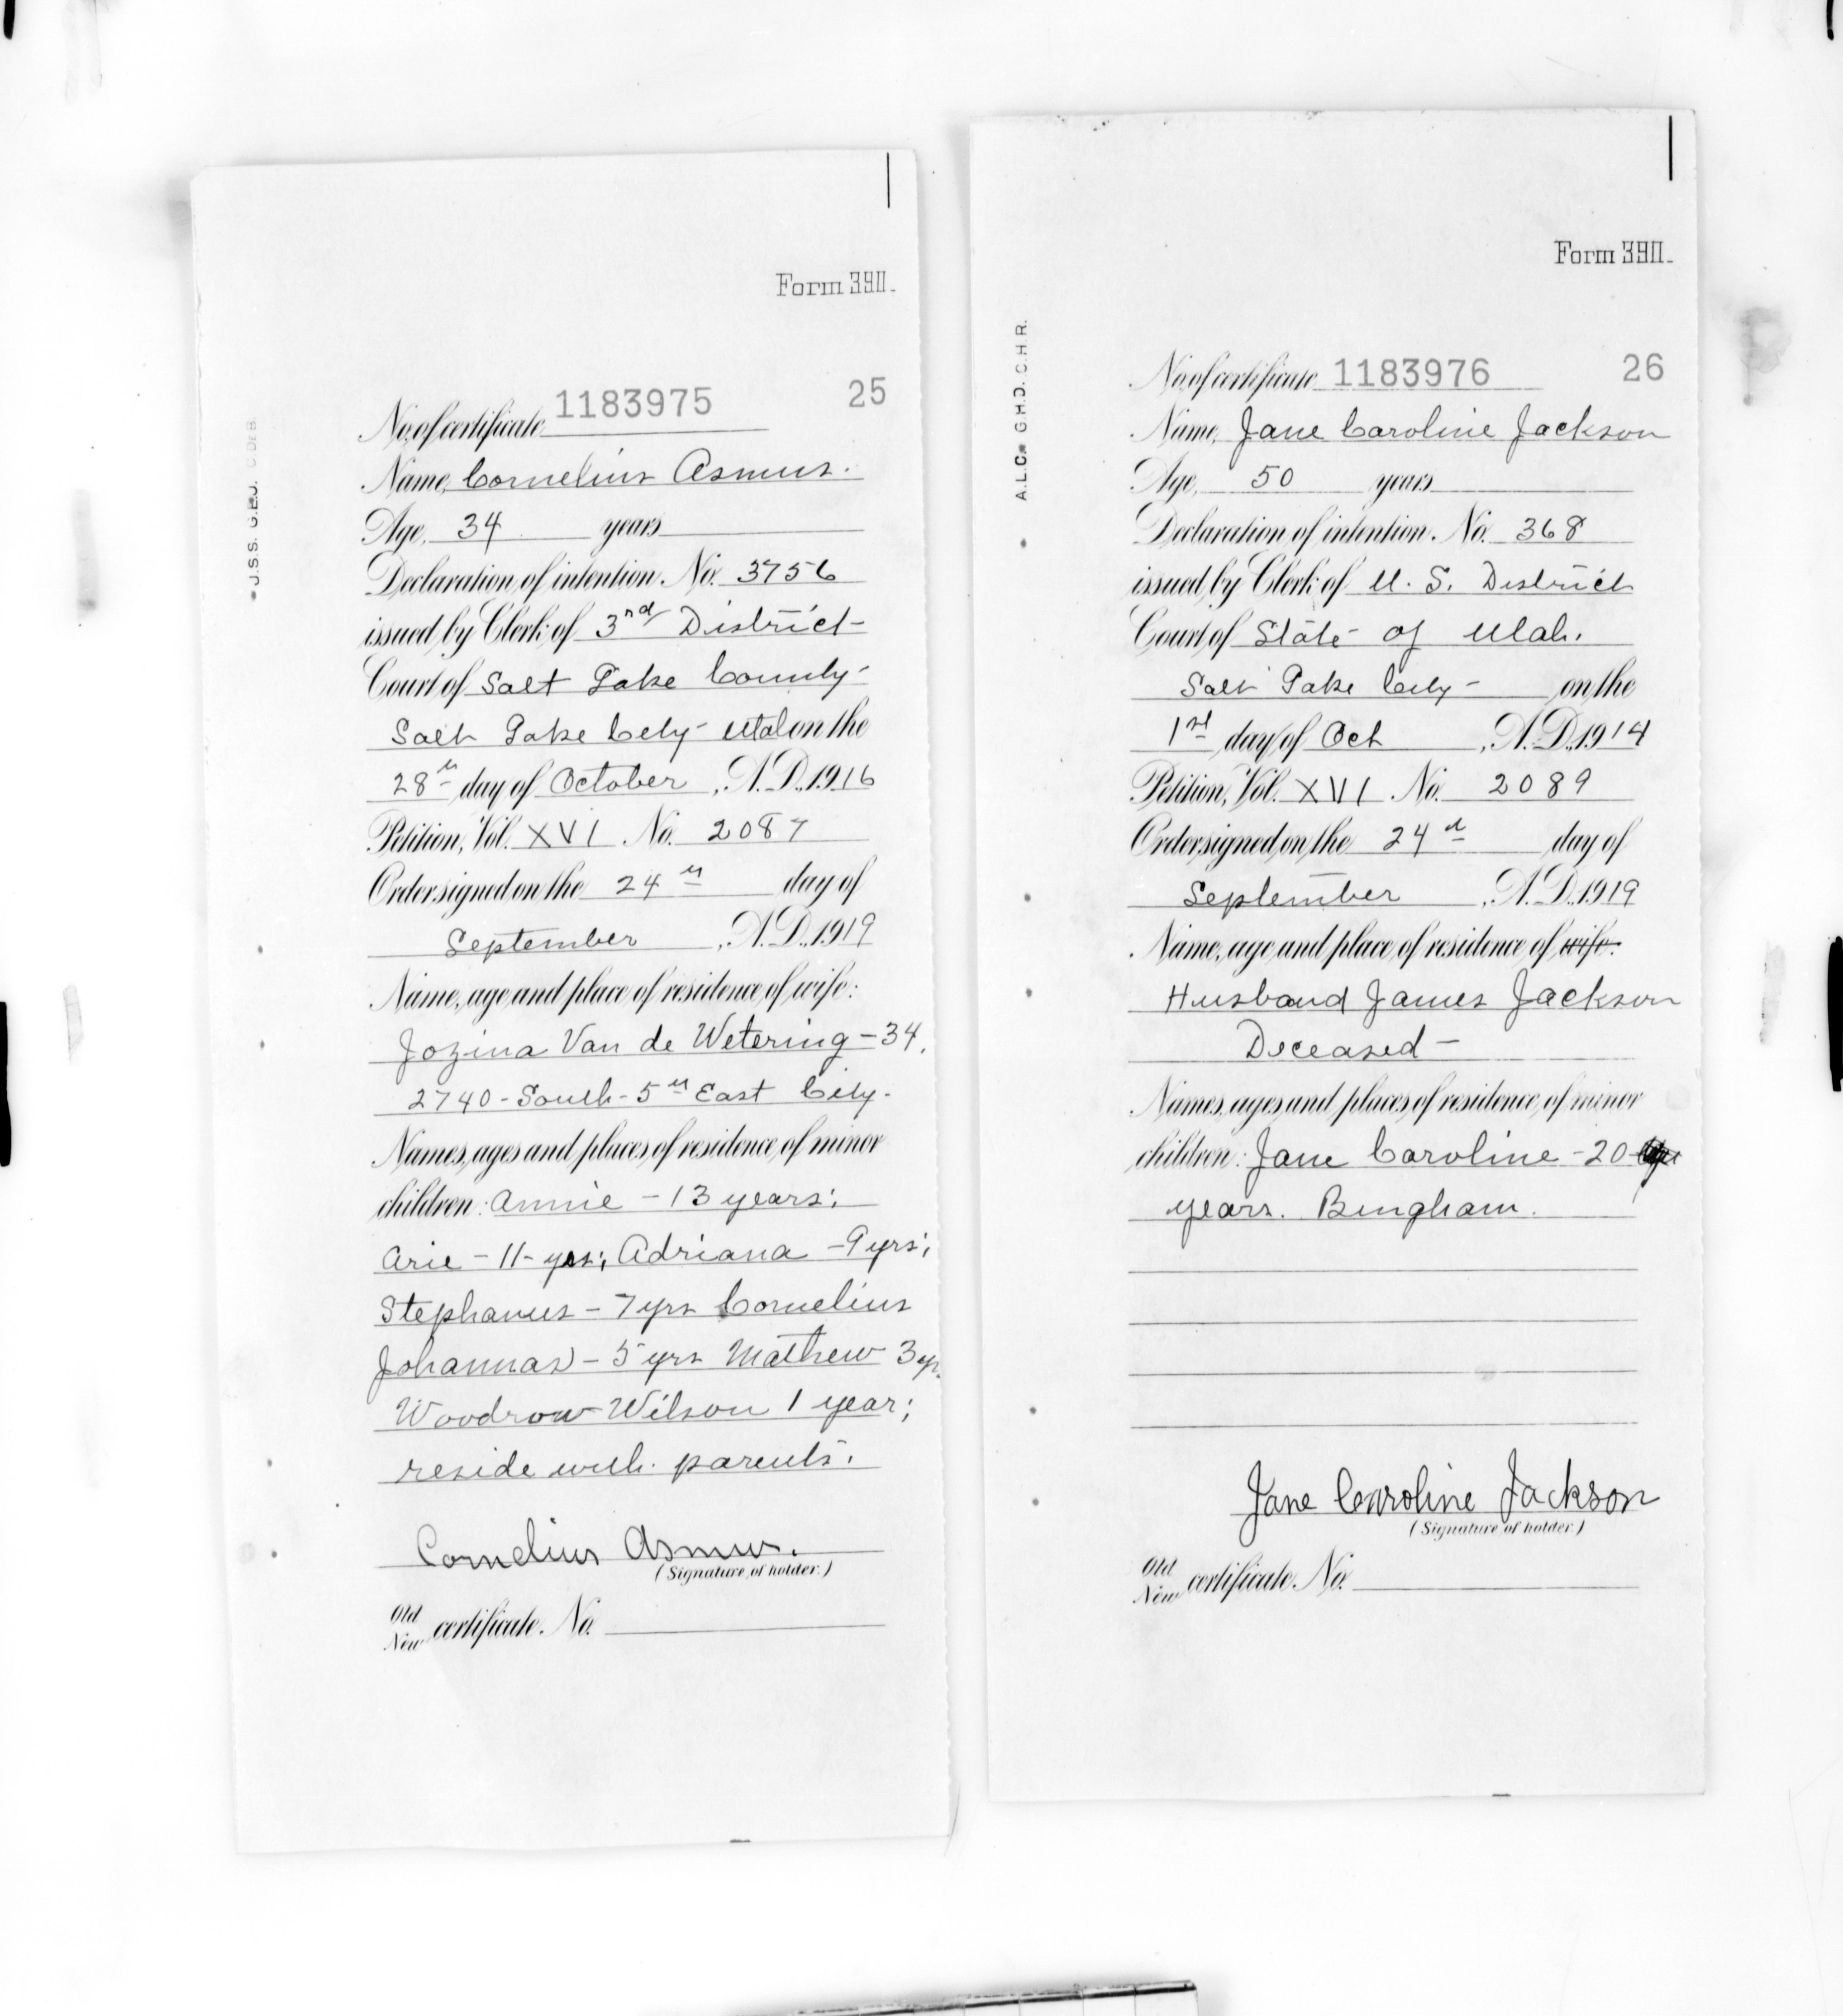 Form 390.
1183975 25
No. of certificate
Name, Cornelius Asmus.
Age, 34 years
Declaration of intention No. 3756
issued by Clerk of 3rd District
Court of Salt Lake County
Salt Lake City - Utah on the
28th day of October, A.D. 1916
Petition, Vol. XVI No. 2087
Order signed on the 24th day of
September, A.D. 1919
Name, age and place of residence of wife:
Jozina Van de Wetering - 34.
2740 - South - 5th East City.
Names, ages and places of residence of minor
children: Annie - 13 years;
Arie - 11 - yrs; Adriana - 9 yrs;
Stephanus - 7 yrs Cornelius
Johannas - 5 yrs Mathew 3 yr.
Woodrow Wilson 1 year;
reside with parents.
Cornelius Asmus.
(Signature of holder.)
Old
New certificate No.
J.S.S. G.E.J.
Form 390.
No. of certificate 1183976 26
Name, Jane Caroline Jackson
Age, 50 years
Declaration of intention. No. 368
issued by Clerk of U. S. District
Court of State of Utah.
Salt Lake City - on the
1st day of Oct, A.D. 1914
Petition, Vol. XVI No. 2089
Order signed on the 24th day of
September, A.D. 1919
Name, age and place of residence of wife:
Husband James Jackson
Deceased -
Names, ages and places of residence of minor
children: Jane Caroline - 20
years. Bingham.
Jane Caroline Jackson
(Signature of holder.)
Old
New certificate No.
A.L.C. G.H.D. C.H.R.